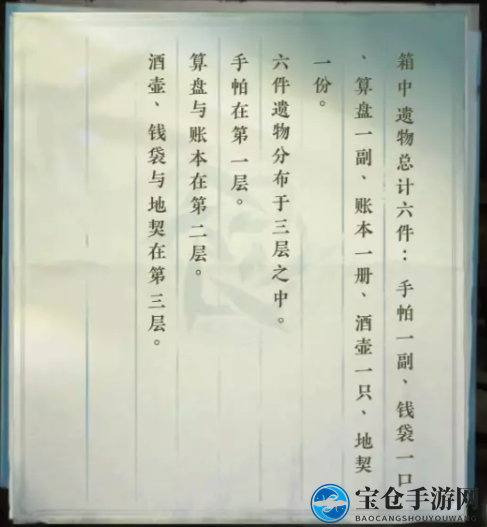 箱中遗物总计六件：手帕一副、钱袋一口
、算盘一副、账本一册、酒壶一只、地契
一份。
六件遗物分布于三层之中。
手帕在第一层。
算盘与账本在第二层。
酒壶、钱袋与地契在第三层。
宝仓手游网
BAOCANGSHOUYOUWANG